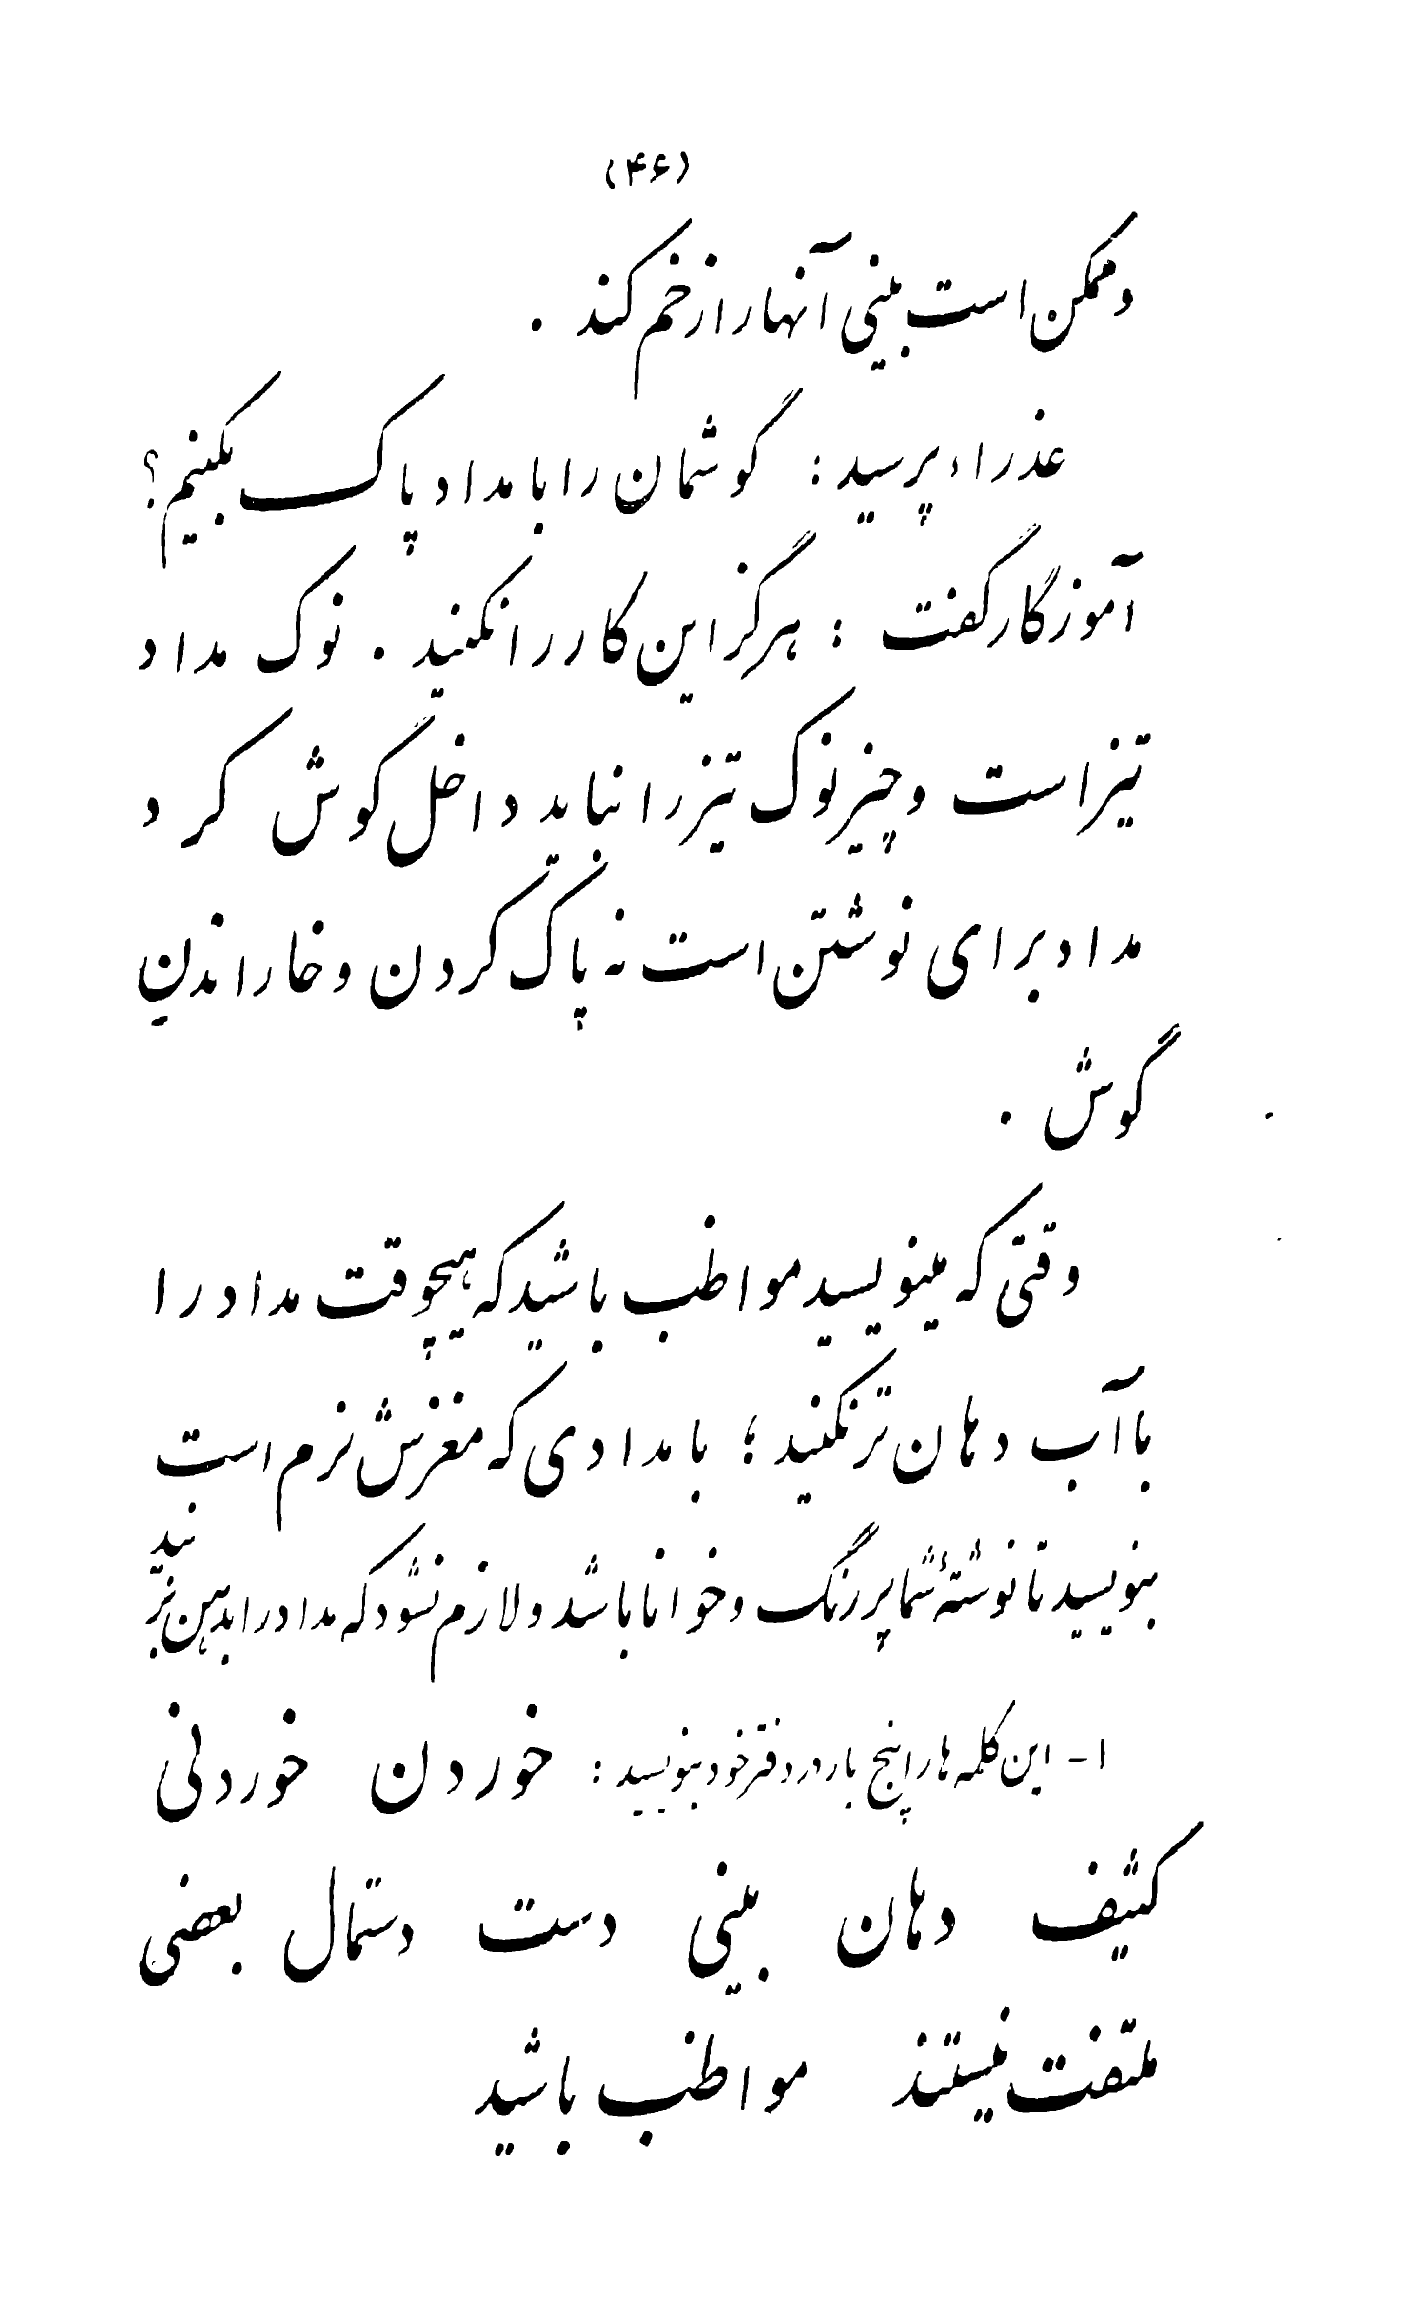 (۴۶)
و ممکن است بینی آنها را زخم کند .
عذراء پرسید : گوشمان را با مداد پاک بکنیم ؟
آموزگار گفت : هرگز این کار را نکنید . نوک مداد
تیز است و چیز نوک تیز را نباید داخل گوش کرد
مداد برای نوشتن است نه پاک کردن و خاراندن
گوش .
وقتی که مینویسید مواظب باشید که هیچوقت مداد را
با آب دهان تر نکنید ؛ با مدادی که مغزش نرم است
بنویسید تا نوشتهٔ شما پر رنگ و خوانا باشد و لازم نشود که مداد را بدهن بزنید
۱- این کلمه ها را پنج بار در دفتر خود بنویسید : خوردن خوردنی
کثیف دهان بینی دست دستمال بعضی
ملتفت نیستند مواظب باشید